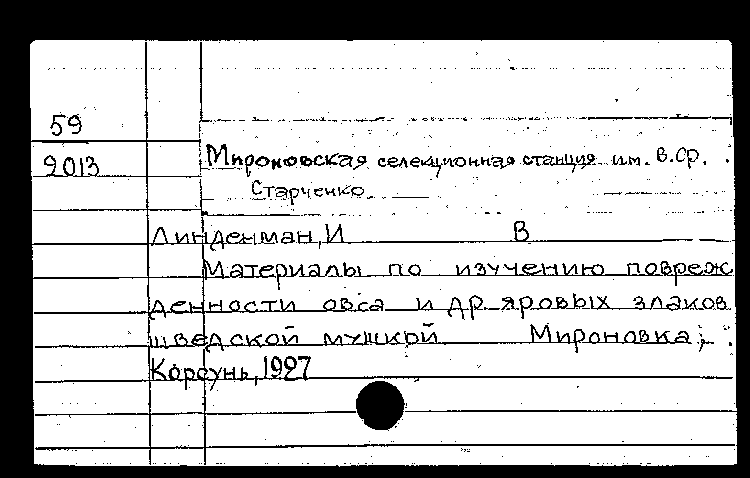 59
9013
Мироновская селекционная станция им. В.Ср.
Старченко
Линденман, И В
Материалы по изучению повреж
денности овса и др яровых злаков
шведской мушкой Мироновка;
Корсунь, 1927